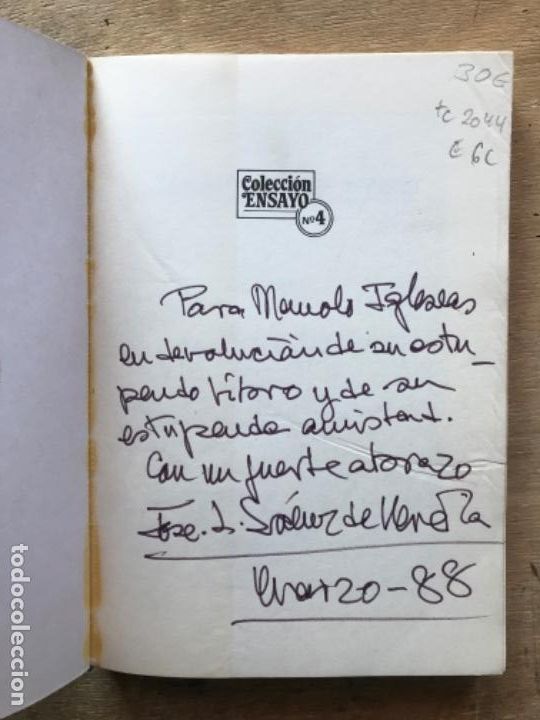 30€
tc 2044
€ 6C
Colección
ENSAYO
Nº4
Para Manolo Iglesias
en devolución de su estu_
pendo libro y de su
estupenda amistad.
Con un fuerte abrazo
Jose. L. Sáenz de Heredia
Marzo-88
todocoleccion